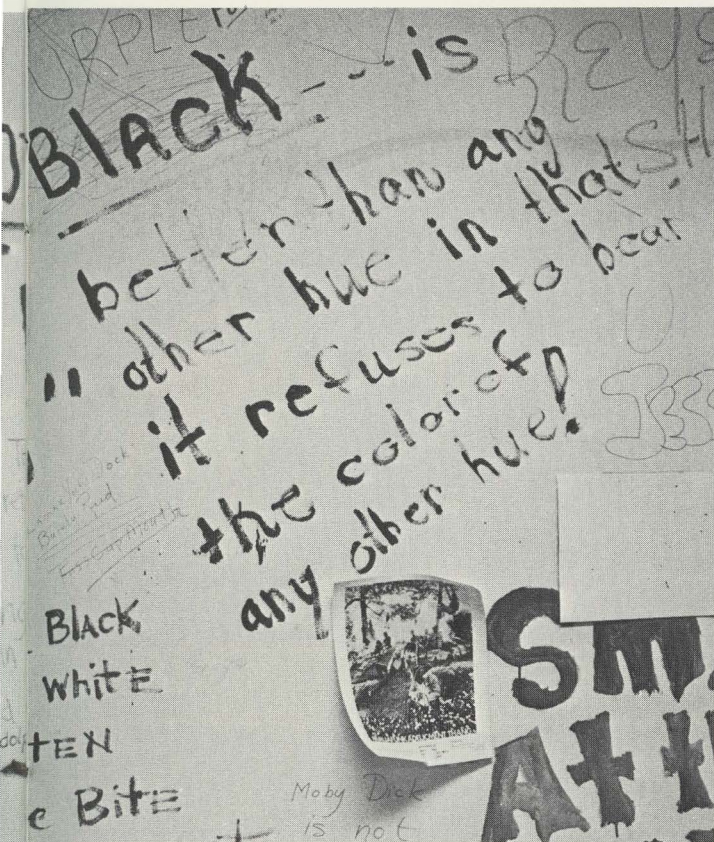 URPLE
BLACK --- is
better than any
" other hue in that
it refuses to bear
the color of
any other hue!
REVE
SH
BLACK
White
tEN
e BitE
Moby Dick
is not
Sm
Att